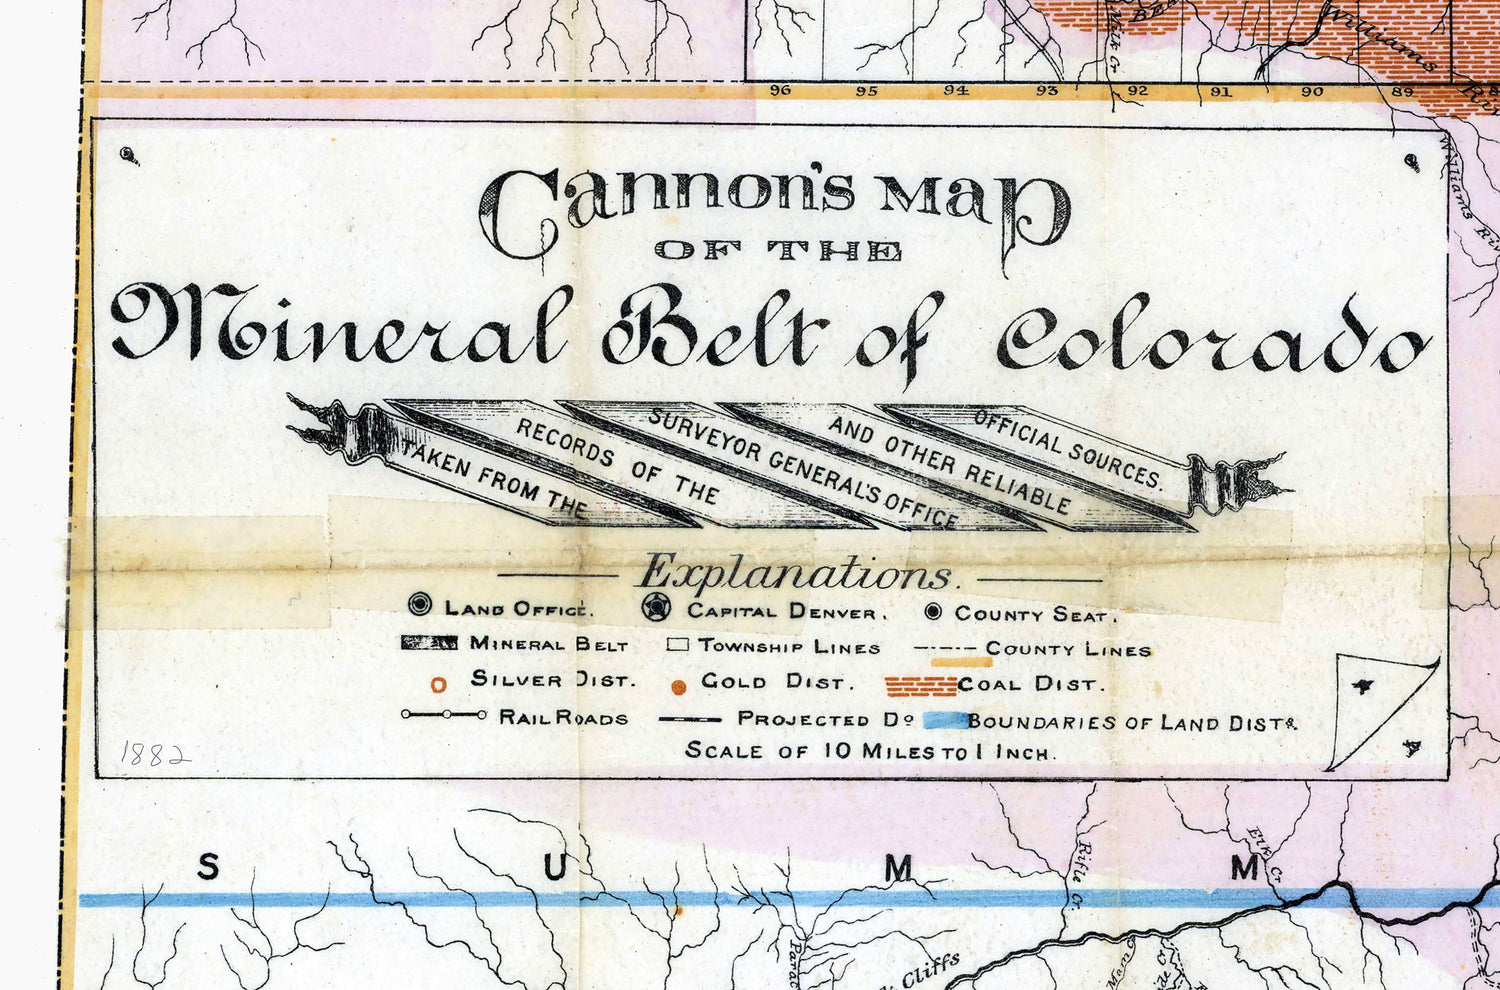 BEA
Milk Cr
Williams Riv
96 95 94 93 92 91 90 89 8
Williams Riv
Cannon's Map
OF THE
Mineral Belt of Colorado
TAKEN FROM THE
RECORDS OF THE
SURVEYOR GENERAL'S OFFICE
AND OTHER RELIABLE
OFFICIAL SOURCES.
Explanations.
LAND OFFICE. CAPITAL DENVER. COUNTY SEAT.
MINERAL BELT TOWNSHIP LINES COUNTY LINES
SILVER DIST. GOLD DIST. COAL DIST.
RAIL ROADS PROJECTED Dº BOUNDARIES OF LAND DISTS.
SCALE OF 10 MILES TO 1 INCH.
1882
S U M M
Elk Cr
Rifle Cr.
Parac
Cliffs
Mam